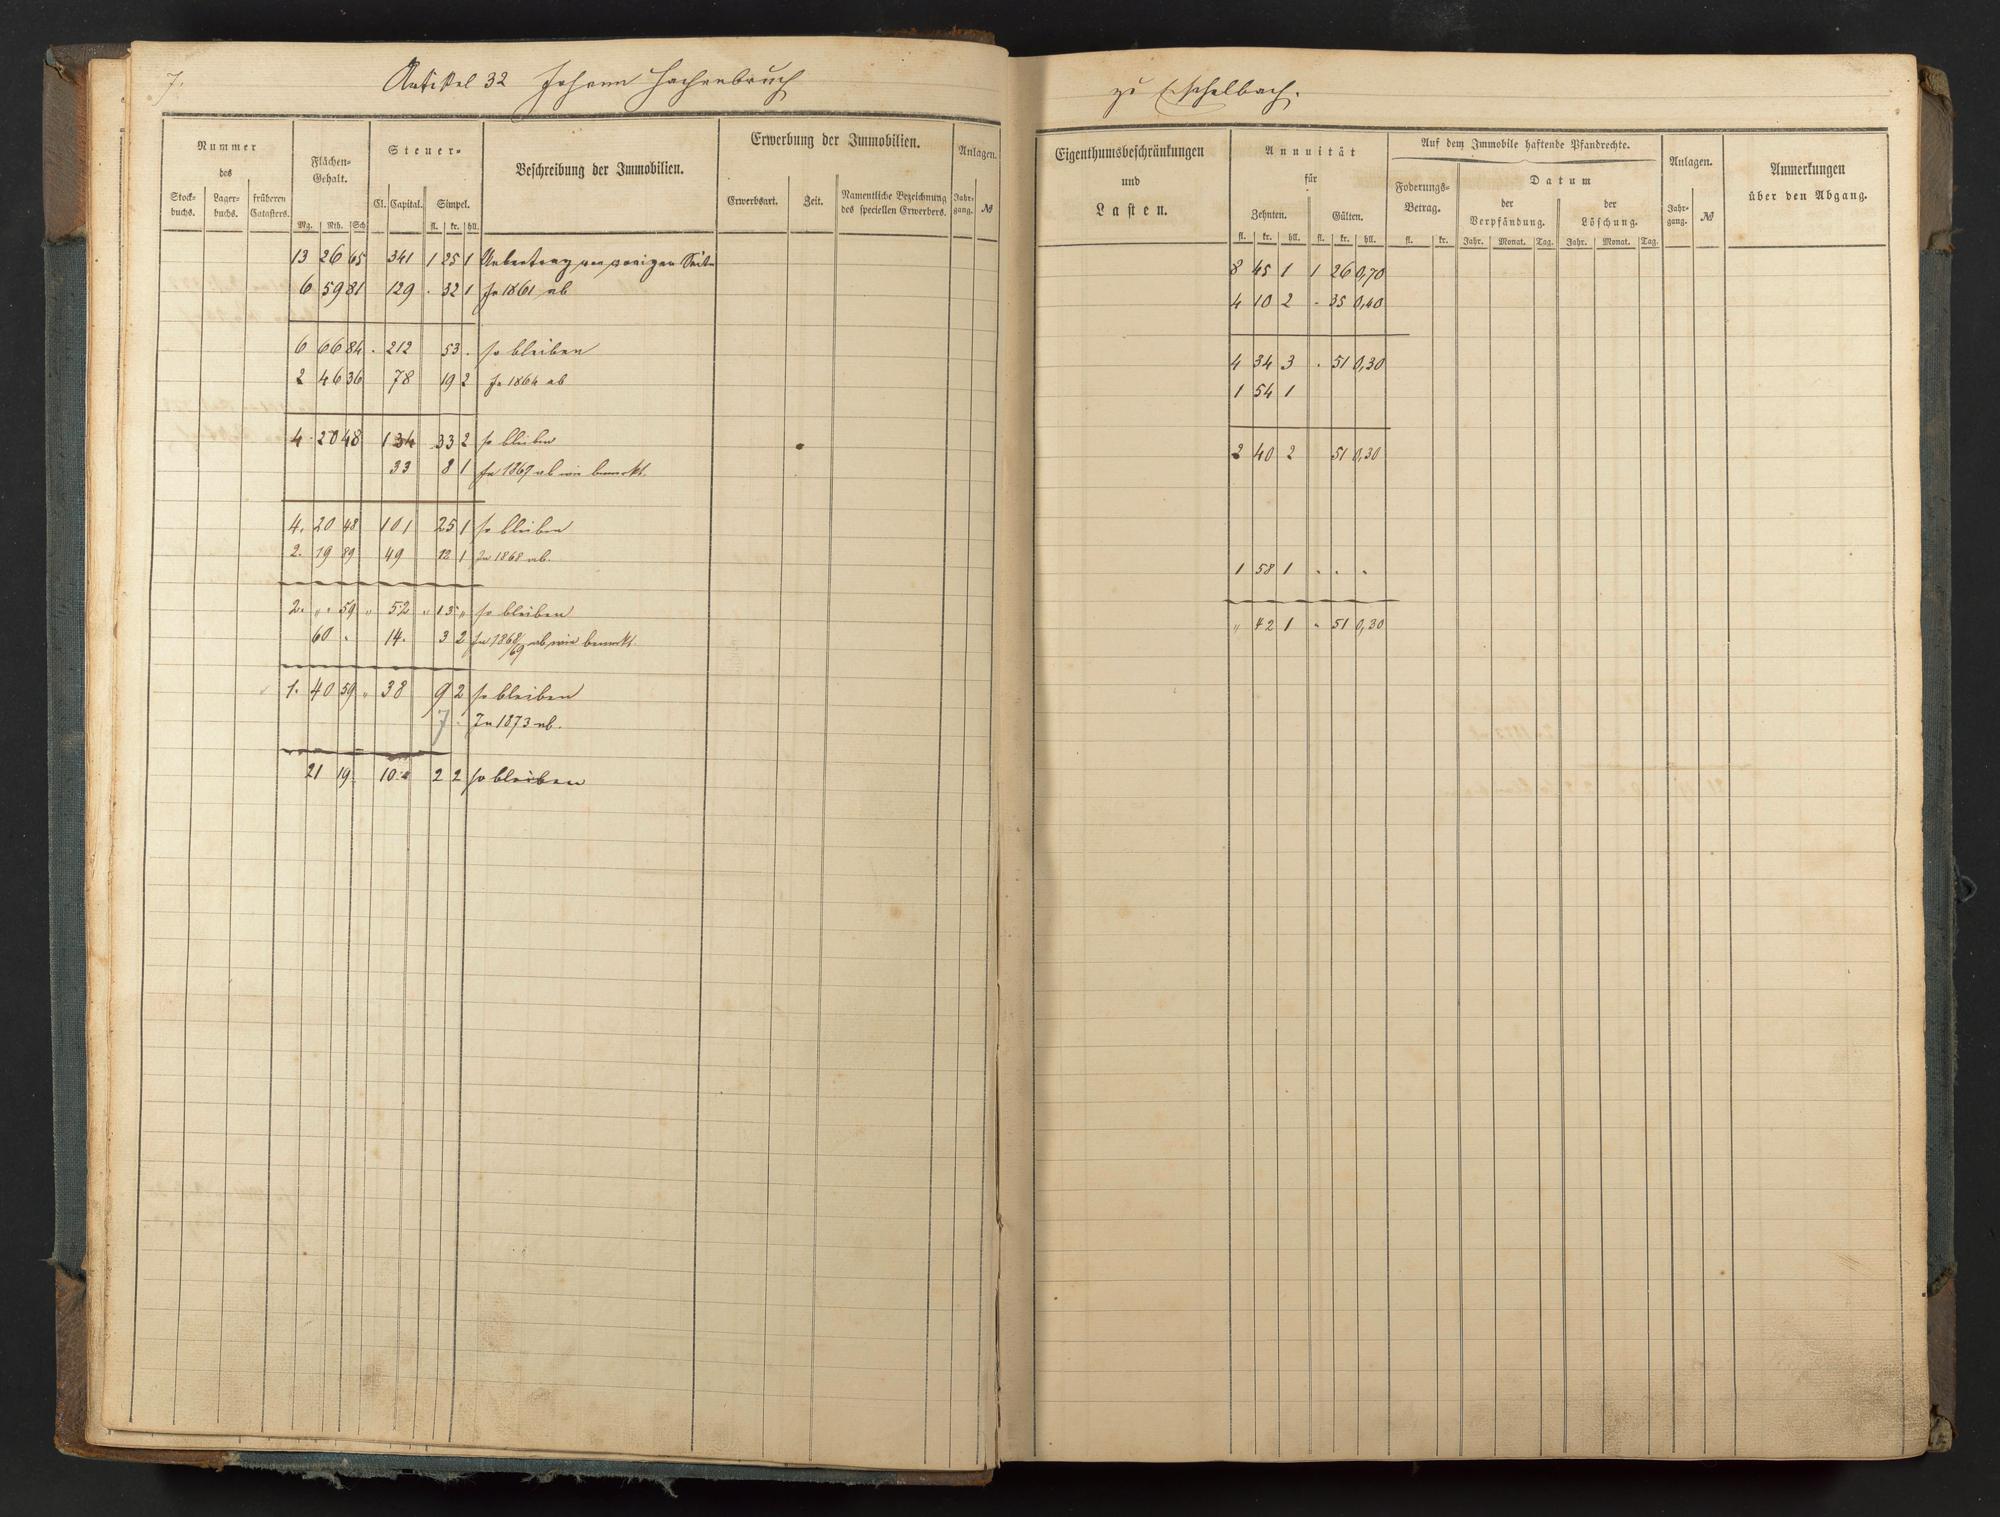 7.
Artikel 32 Johann Hachenbruch
Nummer
des
Stock-
buchs.
Lager-
buchs.
früheren
Catasters.
Flächen-
Gehalt.
Mg. Rth. Sch
Steuer-
Cl. Capital. Simpel.
fl. kr. hll.
Beschreibung der Immobilien.
Erwerbung der Immobilien.
Erwerbsart. Zeit.
Namentliche Bezeichnung
des speciellen Erwerbers.
Anlagen.
Jahr-
gang. №
13 26 65 341 1 25 1 Uebertrag von voriger Seite
6 59 81 129 . 32 1 In 1861 ab
6 66 84 . 212 53 . so bleiben
2 46 36 78 19 2 In 1864 ab
4 . 20 48 134 33 2 so bleiben
33 8 1 In 1867 ab wie bemerkt.
4. 20 48 101 25 1 so bleiben
2. 19 89 49 12 1 In 1868 ab.
2. " . 59 " 52 " 13 " so bleiben
60 . 14. 3 2 In 1868/69 ab wie bemerkt.
1. 40 59 " 38 9 2 so bleiben
7 . In 1873 ab.
21 19. 10 . 2 2 so bleiben
zu Eschelbach.
Eigenthumsbeschränkungen
und
Lasten.
Annuität
für
Zehnten. Gülten.
fl. kr. hll. fl. kr. hll.
Auf dem Immobile haftende Pfandrechte.
Foderungs-
Betrag.
fl. kr.
Datum
der
Verpfändung.
Jahr. Monat. Tag.
der
Löschung.
Jahr. Monat. Tag.
Anlagen.
Jahr-
gang. №
Anmerkungen
über den Abgang.
8 45 1 1 26 0,70
4 10 2 - 35 0,40
4 34 3 . 51 0,30
1 54 1
2 40 2 51 0,30
1 58 1 . . .
" 42 1 " 51 0,30